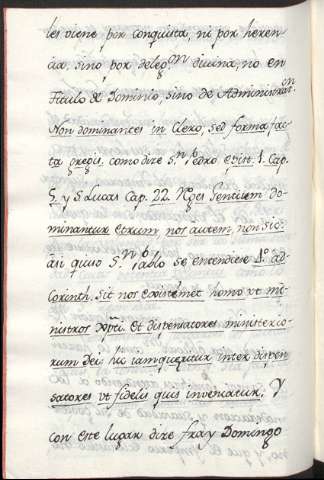 les viene por conquista, ni por heren-
cia, sino por deleg.on divina, no en
Titulo de Dominio, sino de Administrat.on
Non dominantes in Clero, sed forma fac-
ta gregis, como dice S.n Pedro epist. 1. Cap.
5. y S. Lucas Cap. 22. Reges Gentium do-
minantur eorum, vos autem, non sic:
asi quiso S.n Pablo se entendiese 1.º ad
Corinth. sit nos existimet homo ut mi-
nistros Xpti. et dispensatores ministerio-
rum dei: hic iam queritur inter dispen-
satores ut fidelis quis inveniatur. Y
con este lugar dice fray Domingo